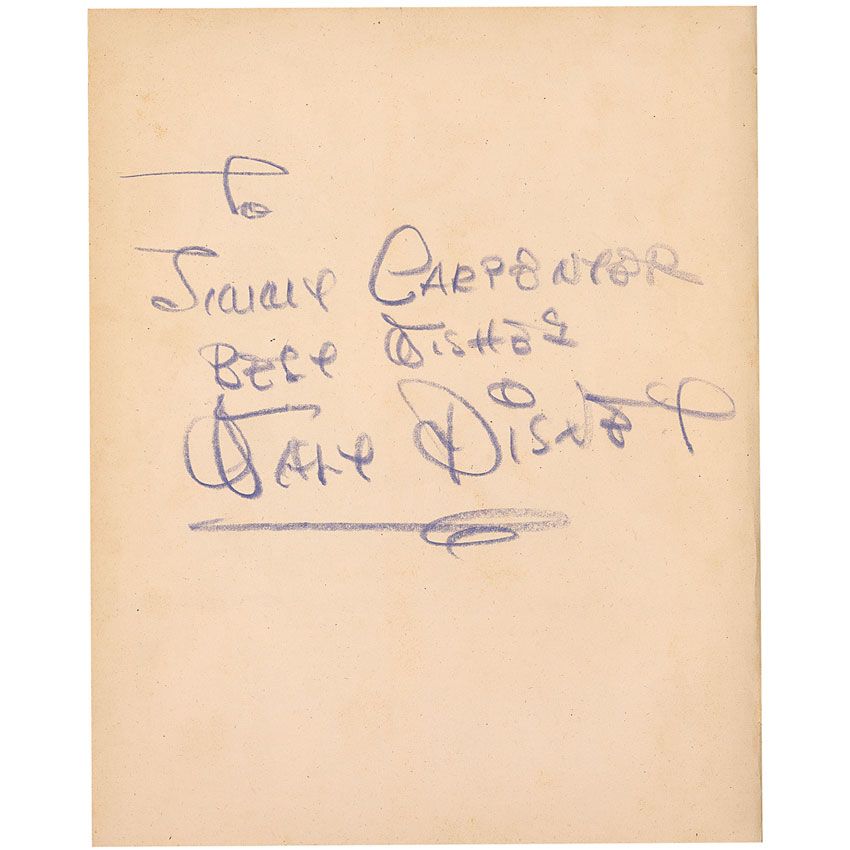 To
Jimmy Carpenter
Best Wishes
Walt Disney